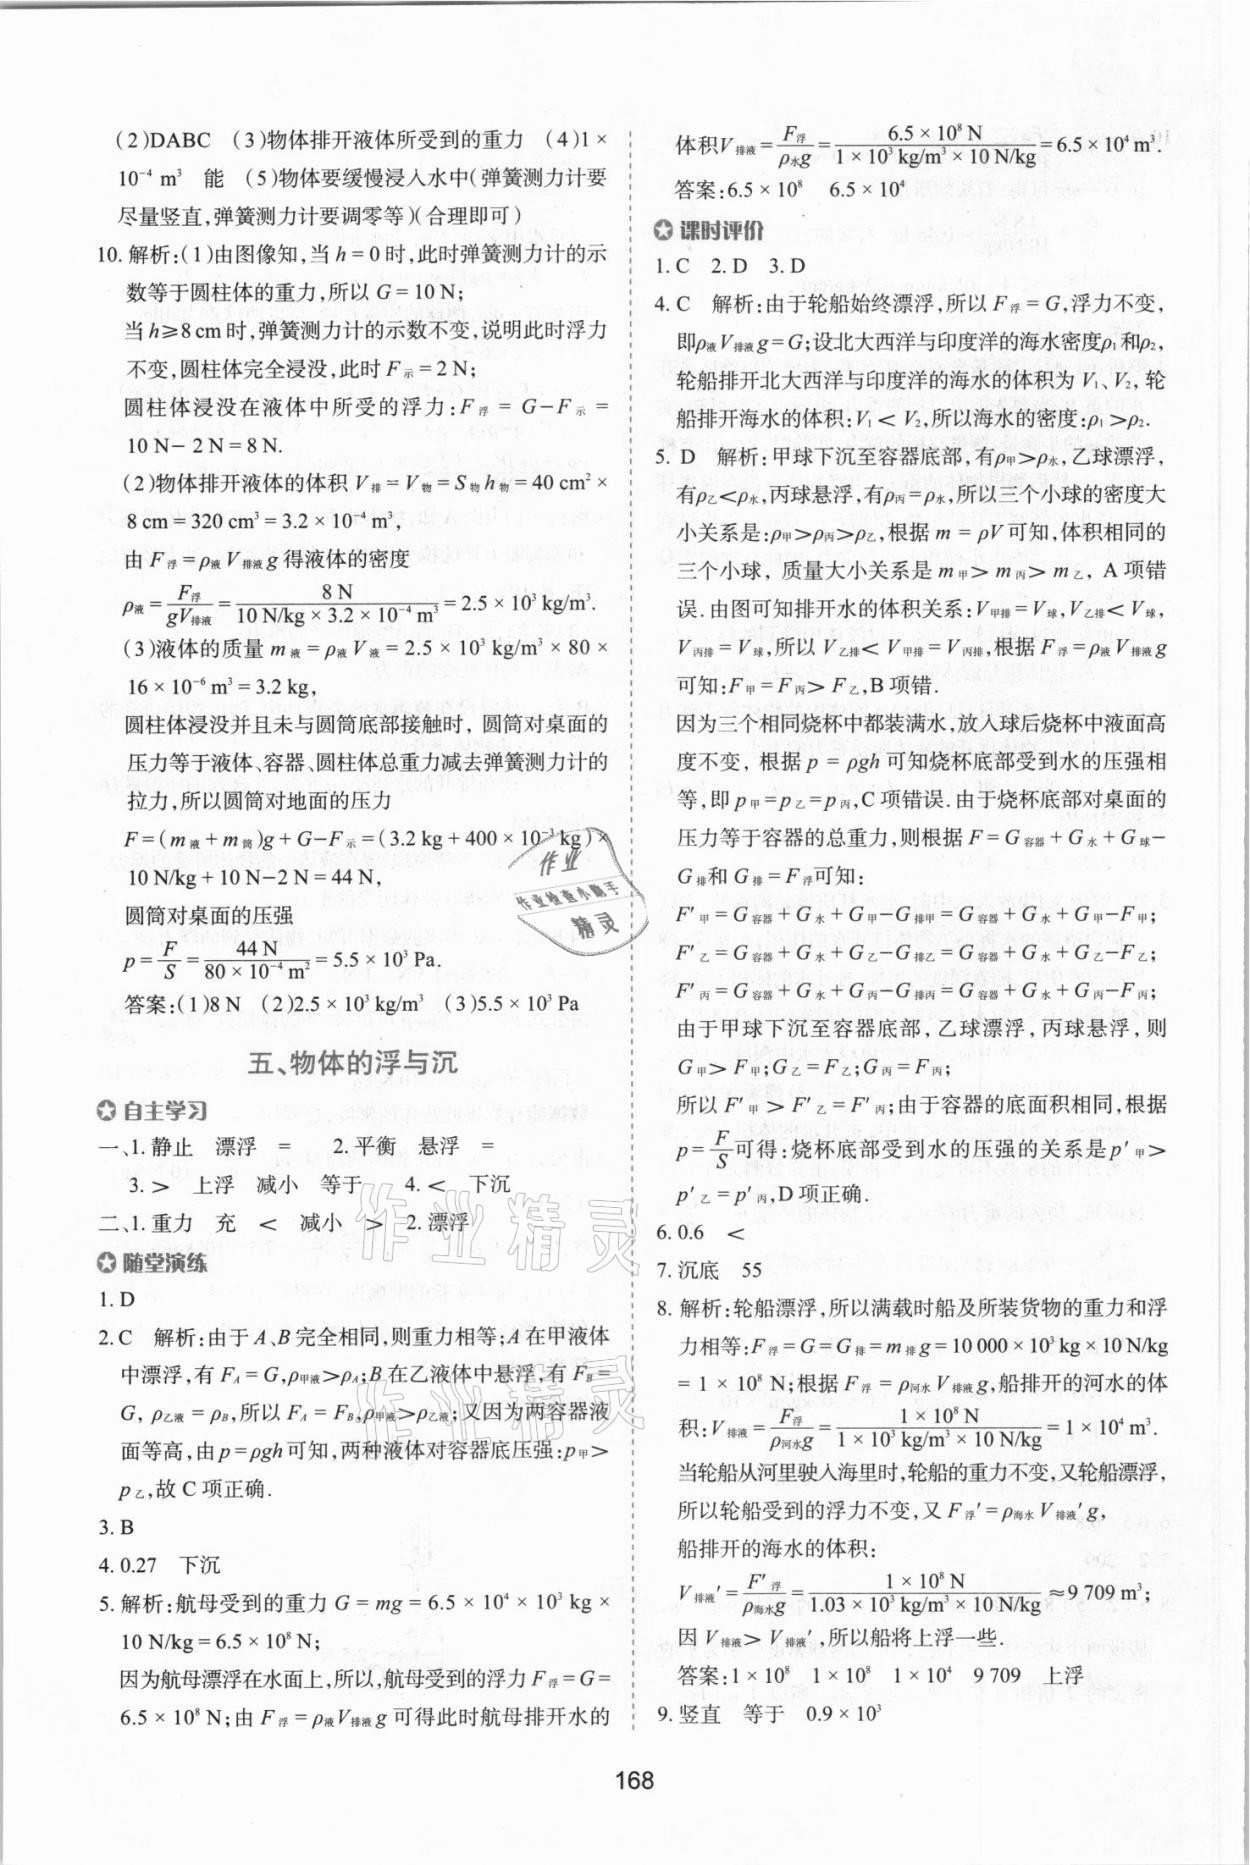 (2)DABC (3)物体排开液体所受到的重力 (4)1×
10⁻⁴ m³ 能 (5)物体要缓慢浸入水中(弹簧测力计要
尽量竖直,弹簧测力计要调零等)(合理即可)
10. 解析:(1)由图像知,当 h=0时,此时弹簧测力计的示
数等于圆柱体的重力,所以 G=10 N;
当 h≥8 cm时,弹簧测力计的示数不变,说明此时浮力
不变,圆柱体完全浸没,此时 F示=2 N.
圆柱体浸没在液体中所受的浮力:F浮 = G-F示 =
10 N- 2 N=8 N.
(2)物体排开液体的体积 V排=V物=S物h物=40 cm²×
8 cm=320 cm³=3.2×10⁻⁴ m³,
由 F浮=ρ液V排液g 得液体的密度
ρ液=F浮/gV排液=8 N/10 N/kg×3.2×10⁻⁴ m³=2.5×10³ kg/m³.
(3)液体的质量 m液=ρ液V液=2.5×10³ kg/m³×80×
16×10⁻⁶ m³=3.2 kg,
圆柱体浸没并且未与圆筒底部接触时,圆筒对桌面的
压力等于液体、容器、圆柱体总重力减去弹簧测力计的
拉力,所以圆筒对地面的压力
F=(m液+m筒)g+G-F示=(3.2 kg+400×10⁻³ kg)×
10 N/kg+10 N-2 N=44 N,
圆筒对桌面的压强
p=F/S=44 N/80×10⁻⁴ m²=5.5×10³ Pa.
答案:(1)8 N (2)2.5×10³ kg/m³ (3)5.5×10³ Pa
五、物体的浮与沉
自主学习
一、1. 静止 漂浮 = 2. 平衡 悬浮 =
3. > 上浮 减小 等于 4. < 下沉
二、1. 重力 充 < 减小 > 2. 漂浮
随堂演练
1. D
2. C 解析:由于 A、B 完全相同,则重力相等;A 在甲液体
中漂浮,有 F_A=G,ρ甲液>ρ_A;B 在乙液体中悬浮,有 F_B=
G, ρ乙液=ρ_B,所以 F_A=F_B,ρ甲液>ρ乙液;又因为两容器液
面等高,由 p=ρgh 可知,两种液体对容器底压强:p甲>
p乙,故 C 项正确.
3. B
4. 0.27 下沉
5. 解析:航母受到的重力 G=mg=6.5×10⁴×10³ kg×
10 N/kg=6.5×10⁸ N;
因为航母漂浮在水面上,所以,航母受到的浮力 F浮=G=
6.5×10⁸ N;由 F浮=ρ液V排液g 可得此时航母排开水的
体积V排液=F浮/ρ水g=6.5×10⁸ N/1×10³ kg/m³×10 N/kg=6.5×10⁴ m³.
答案:6.5×10⁸ 6.5×10⁴
课时评价
1. C 2. D 3. D
4. C 解析:由于轮船始终漂浮,所以 F浮=G,浮力不变,
即ρ液V排液g=G;设北大西洋与印度洋的海水密度ρ₁和ρ₂,
轮船排开北大西洋与印度洋的海水的体积为 V₁、V₂, 轮
船排开海水的体积:V₁<V₂,所以海水的密度:ρ₁>ρ₂.
5. D 解析:甲球下沉至容器底部,有ρ甲>ρ水,乙球漂浮,
有ρ乙<ρ水,丙球悬浮,有ρ丙=ρ水,所以三个小球的密度大
小关系是:ρ甲>ρ丙>ρ乙,根据 m=ρV 可知,体积相同的
三个小球, 质量大小关系是 m甲>m丙>m乙, A 项错
误. 由图可知排开水的体积关系:V甲排=V球,V乙排<V球,
V丙排=V球,所以 V乙排<V甲排=V丙排,根据 F浮=ρ液V排液g
可知:F甲=F丙>F乙,B 项错.
因为三个相同烧杯中都装满水,放入球后烧杯中液面高
度不变, 根据 p=ρgh 可知烧杯底部受到水的压强相
等,即 p甲=p乙=p丙,C 项错误. 由于烧杯底部对桌面的
压力等于容器的总重力,则根据 F=G容器+G水+G球-
G排和 G排=F浮可知:
F′甲=G容器+G水+G甲-G排甲=G容器+G水+G甲-F甲;
F′乙=G容器+G水+G乙-G排乙=G容器+G水+G乙-F乙;
F′丙=G容器+G水+G丙-G排丙=G容器+G水+G丙-F丙;
由于甲球下沉至容器底部,乙球漂浮,丙球悬浮,则
G甲>F甲;G乙=F乙;G丙=F丙;
所以 F′甲>F′乙=F′丙;由于容器的底面积相同,根据
p=F/S可得:烧杯底部受到水的压强的关系是 p′甲>
p′乙=p′丙,D 项正确.
6. 0.6 <
7. 沉底 55
8. 解析:轮船漂浮,所以满载时船及所装货物的重力和浮
力相等:F浮=G=G排=m排g=10 000×10³ kg×10 N/kg
=1×10⁸ N;根据 F浮=ρ河水V排液g,船排开的河水的体
积:V排液=F浮/ρ河水g=1×10⁸ N/1×10³ kg/m³×10 N/kg=1×10⁴ m³.
当轮船从河里驶入海里时,轮船的重力不变,又轮船漂浮,
所以轮船受到的浮力不变,又 F浮′=ρ海水V排液′g,
船排开的海水的体积:
V排液′=F′浮/ρ海水g=1×10⁸ N/1.03×10³ kg/m³×10 N/kg≈9 709 m³;
因 V排液>V排液′,所以船将上浮一些.
答案:1×10⁸ 1×10⁸ 1×10⁴ 9 709 上浮
9. 竖直 等于 0.9×10³
168
作业
作业检查小助手
精灵
作业精灵
作业精灵